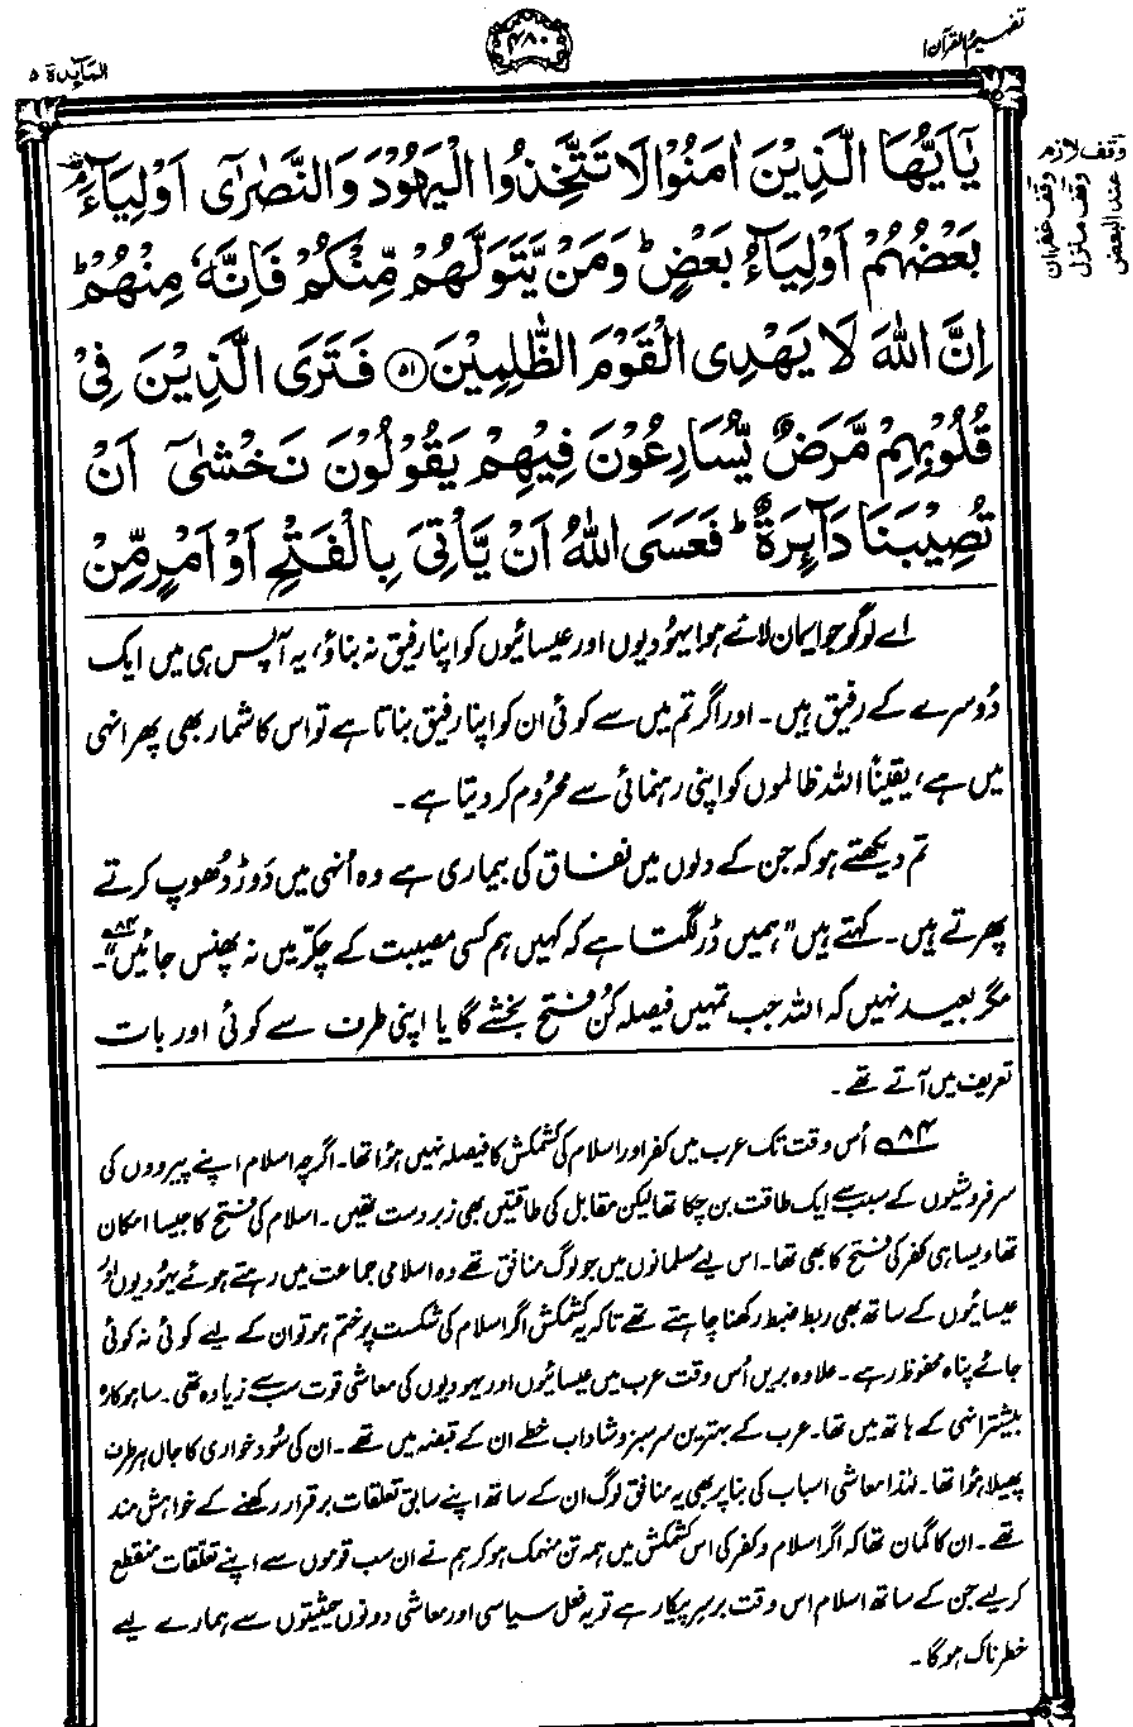 تفہیم القرآن ۱
۴۸۰
المآیدة ۵
یٰۤاَیُّهَا الَّذِیْنَ اٰمَنُوْا لَا تَتَّخِذُوا الْیَهُوْدَ وَالنَّصٰرٰۤی اَوْلِیَآءَ ۘؔ
بَعْضُهُمْ اَوْلِیَآءُ بَعْضٍ ؕ وَمَنْ یَّتَوَلَّهُمْ مِّنْكُمْ فَاِنَّهٗ مِنْهُمْ ؕ
اِنَّ اللّٰهَ لَا یَهْدِی الْقَوْمَ الظّٰلِمِیْنَ ﴿۵۱﴾ فَتَرَی الَّذِیْنَ فِیْ
قُلُوْبِهِمْ مَّرَضٌ یُّسَارِعُوْنَ فِیْهِمْ یَقُوْلُوْنَ نَخْشٰۤی اَنْ
تُصِیْبَنَا دَآىِٕرَةٌ ؕ فَعَسَی اللّٰهُ اَنْ یَّاْتِیَ بِالْفَتْحِ اَوْ اَمْرٍ مِّنْ
وقف لازم
وقف منزل
وقف غفران
عند البعض
اے لوگو جو ایمان لائے ہو! یہودیوں اور عیسائیوں کو اپنا رفیق نہ بناؤ، یہ آپس ہی میں ایک
دُوسرے کے رفیق ہیں۔ اور اگر تم میں سے کوئی ان کو اپنا رفیق بناتا ہے تو اس کا شمار بھی پھر انہی
میں ہے، یقیناً اللہ ظالموں کو اپنی رہنمائی سے محرُوم کر دیتا ہے۔
تم دیکھتے ہو کہ جن کے دلوں میں نفاق کی بیماری ہے وہ اُنہی میں دَوڑ دُھوپ کرتے
پھرتے ہیں۔ کہتے ہیں "ہمیں ڈر لگتا ہے کہ کہیں ہم کسی مصیبت کے چکّر میں نہ پھنس جائیں"۸۴۔
مگر بعید نہیں کہ اللہ جب تمہیں فیصلہ کُن فتح بخشے گا یا اپنی طرف سے کوئی اور بات
تعریف میں آتے تھے۔
۸۴ اُس وقت تک عرب میں کفر اور اسلام کی کشمکش کا فیصلہ نہیں ہؤا تھا۔ اگرچہ اسلام اپنے پیرووں کی
سرفروشیوں کے سبب سے ایک طاقت بن چکا تھا لیکن مقابل کی طاقتیں بھی زبردست تھیں۔ اسلام کی فتح کا جیسا امکان
تھا ویسا ہی کفر کی فتح کا بھی تھا۔ اس لیے مسلمانوں میں جو لوگ منافق تھے وہ اسلامی جماعت میں رہتے ہوئے یہُودیوں اور
عیسائیوں کے ساتھ بھی ربط ضبط رکھنا چاہتے تھے تاکہ یہ کشمکش اگر اسلام کی شکست پر ختم ہو تو ان کے لیے کوئی نہ کوئی
جائے پناہ محفوظ رہے۔ علاوہ بریں اُس وقت عرب میں عیسائیوں اور یہودیوں کی معاشی قوت سب سے زیادہ تھی۔ ساہوکارہ
بیشتر انہی کے ہاتھ میں تھا۔ عرب کے بہترین سرسبز و شاداب خطے ان کے قبضہ میں تھے۔ ان کی سُود خواری کا جال ہر طرف
پھیلا ہؤا تھا۔ لہٰذا معاشی اسباب کی بنا پر بھی یہ منافق لوگ ان کے ساتھ اپنے سابق تعلقات برقرار رکھنے کے خواہش مند
تھے۔ ان کا گمان تھا کہ اگر اسلام و کفر کی اس کشمکش میں ہمہ تن منہمک ہو کر ہم نے ان سب قوموں سے اپنے تعلّقات منقطع
کر لیے جن کے ساتھ اسلام اس وقت برسرِ پیکار ہے تو یہ فعل سیاسی اور معاشی دونوں حیثیتوں سے ہمارے لیے
خطرناک ہوگا۔